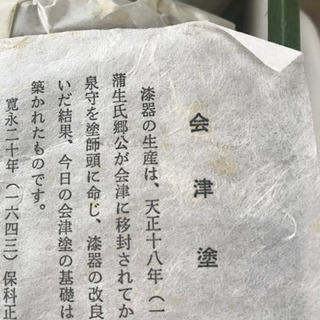 会津塗
漆器の生産は、天正十八年（一
蒲生氏郷公が会津に移封されてか
泉守を塗師頭に命じ、漆器の改良
いだ結果、今日の会津塗の基礎は
築かれたものです。
寛永二十年（一六四三）保科正